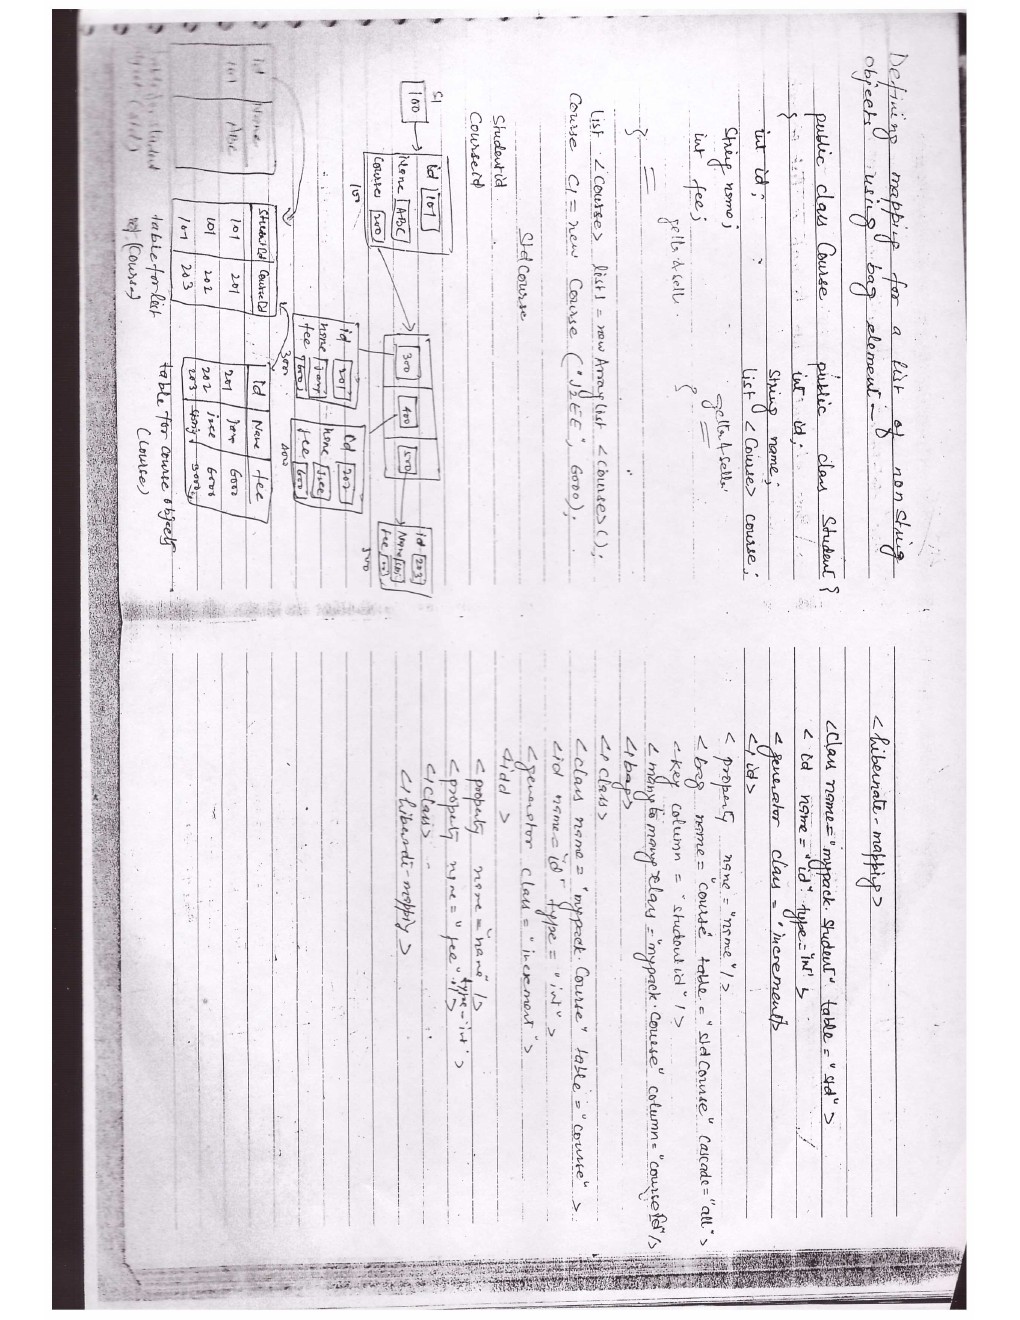 Defining mapping for a list of non String
objects using bag element -
public class Course
{
int id;
String name;
int fee;
getter & setter
}
public class Student {
int id;
String name;
List <Course> course;
getter & setter
}
List <Course> list1 = new ArrayList <Course>();
Course C1 = new Course ("J2EE", 6000);
Std Course
Student id
Course id
S1
100
id 101
Name ABC
Courses 200
100
300 400 500
id 203
Name
fee
500
id 201
name
fee
300
id 202
name J2ee
fee
400
Id Name
101 ABC
table for student
object (std)
StudentId CourseId
101 201
101 202
101 203
table for list
of (Course)
Id Name fee
201 6000
202 j2ee 6000
203
table for course objects
(course)
<hibernate-mapping>
<class name="mypack.Student" table="std">
<id name="id" type="int">
<generator class="increment/>
</id>
<property name="name"/>
<bag name="course" table="stdCourse" cascade="all">
<key column="studentid"/>
<many to many class="mypack.Course" column="courseId"/>
</bag>
</class>
<class name="mypack.Course" table="course">
<id name="id" type="int">
<generator class="increment">
</idd>
<property name="name"/>
<property name="fee" type=int />
</class>
</hibernate-mapping>